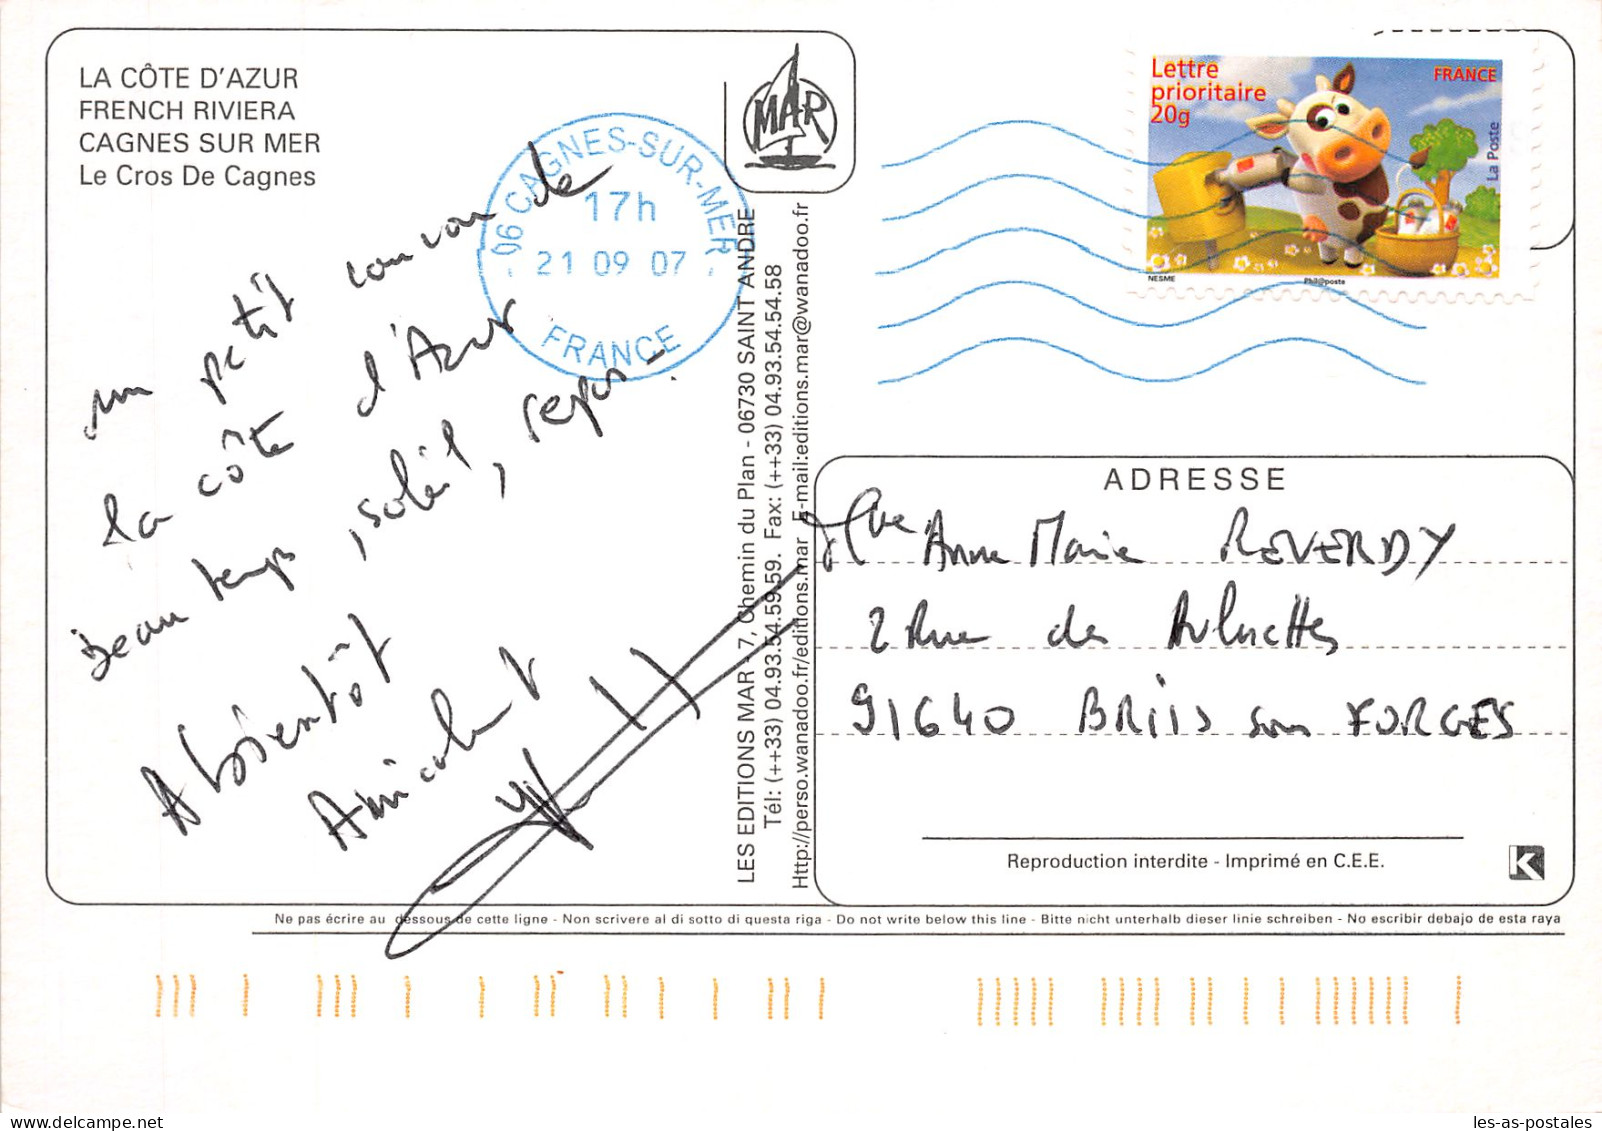 LA CÔTE D'AZUR
FRENCH RIVIERA
CAGNES SUR MER
Le Cros De Cagnes
un petit coucou de
la côte d'Azur
beau temps, soleil, repos !
A bientôt
Amicalement
06 CAGNES-SUR-MER
17h
21 09 07
FRANCE
MAR
LES EDITIONS MAR - 7, Chemin du Plan - 06730 SAINT ANDRE
Tél: (++33) 04.93.54.59.59. Fax: (++33) 04.93.54.54.58
Http://perso.wanadoo.fr/editions.mar E-mail:editions.mar@wanadoo.fr
Lettre
prioritaire
20g
FRANCE
La Poste
NESME
Phil@poste
ADRESSE
Mme Anne Marie REVERDY
2 Rue des
91640 BRIIS sous FORGES
Reproduction interdite - Imprimé en C.E.E.
K
Ne pas écrire au dessous de cette ligne - Non scrivere al di sotto di questa riga - Do not write below this line - Bitte nicht unterhalb dieser linie schreiben - No escribir debajo de esta raya
les-as-postales